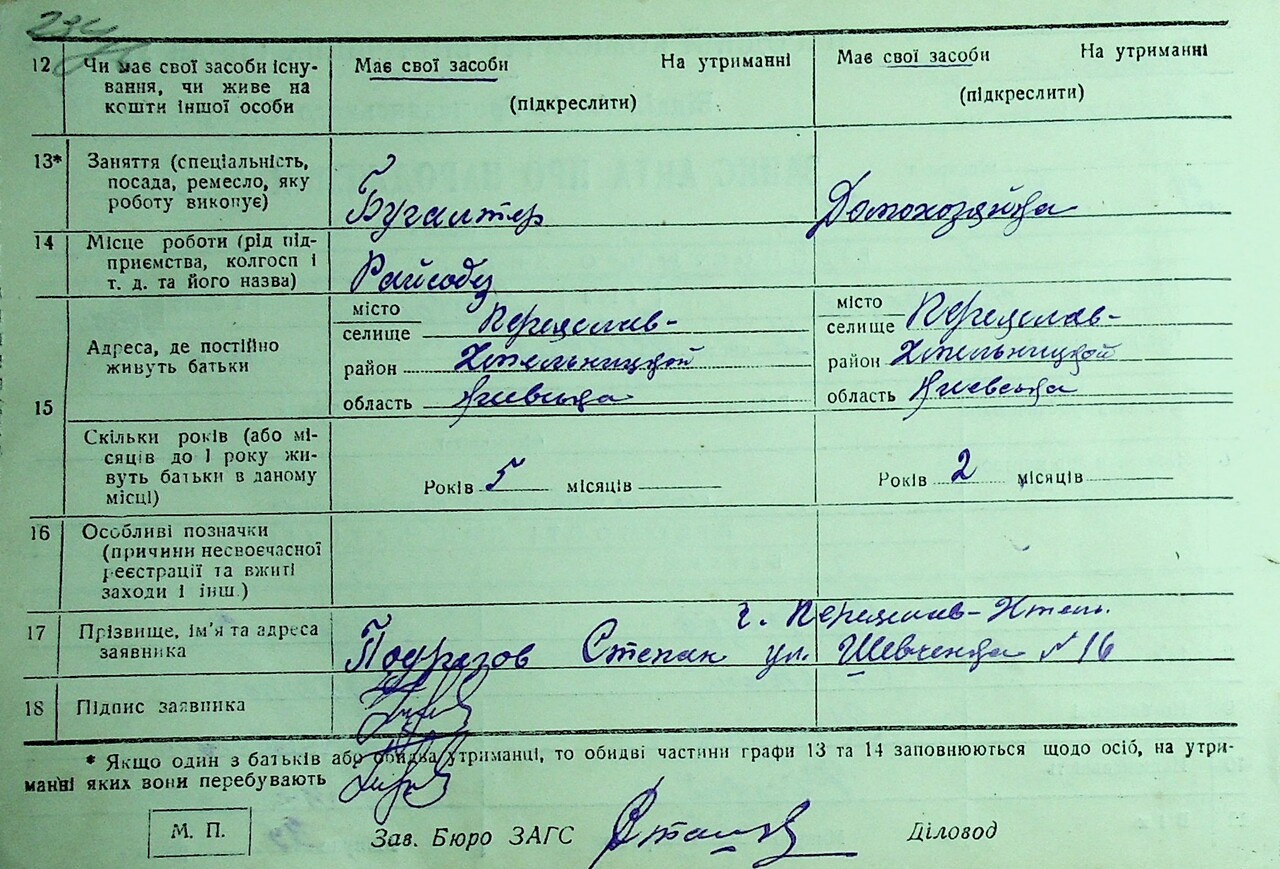 12 Чи має свої засоби існування, чи живе на кошти іншої особи
Має свої засоби На утриманні
(підкреслити)
Має свої засоби На утриманні
(підкреслити)
13* Заняття (спеціальність,
посада, ремесло, яку
роботу виконує)
Бугалтер
Домохозяйца
14 Місце роботи (рід під-
приємства, колгосп і
т. д. та його назва)
15 Адреса, де постійно
живуть батьки
місто
селище Переяслав-
район Хмельницкой
область Киевська
місто
селище Переяслав-
район Хмельницкой
область Киевська
Скільки років (або мі-
сяців до 1 року жи-
вуть батьки в даному
місці)
Років 5 місяців
Років 2 місяців
16 Особливі позначки
(причини несвоєчасної
реєстрації та вжиті
заходи і інш.)
17 Прізвище, ім'я та адреса
заявника
г. Переяслав-Хмель.
Подрезов Степан ул. Шевченка № 16
18 Підпис заявника
* Якщо один з батьків або обидва утриманці, то обидві частини графи 13 та 14 заповнюються щодо осіб, на утри-
манні яких вони перебувають
М. П.
Зав. Бюро ЗАГС
Діловод